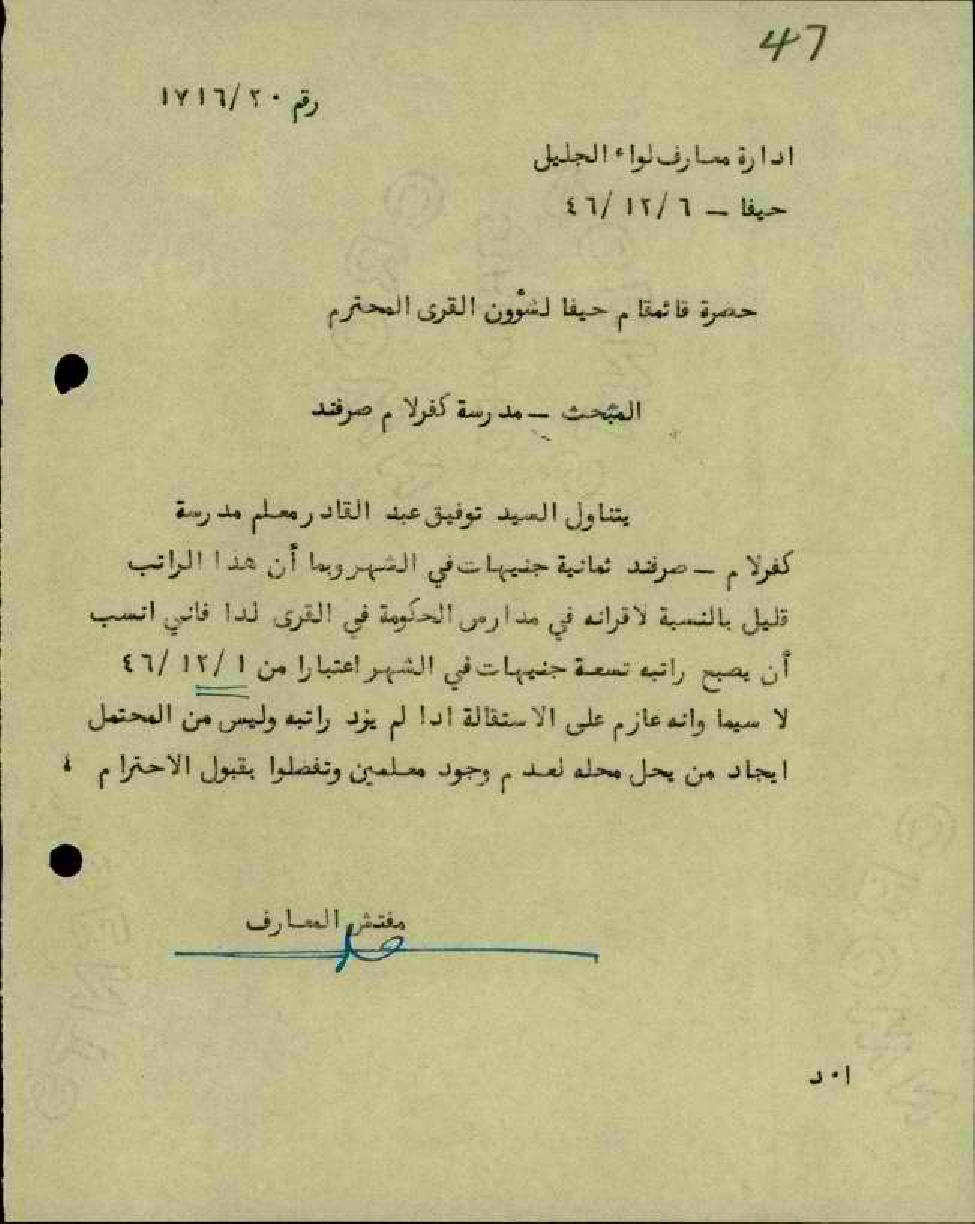 47
رقم ١٧١٦/٢٠
ادارة معارف لواء الجليل
حيفا – ٤٦/١٢/٦
حضرة قائمقام حيفا لشؤون القرى المحترم
المبحث – مدرسة كفرلام صرفند
يتناول السيد توفيق عبد القادر معلم مدرسة
كفرلام – صرفند ثمانية جنيهات في الشهر وبما أن هذا الراتب
قليل بالنسبة لاقرانه في مدارس الحكومة في القرى لذا فاني انسب
أن يصبح راتبه تسعة جنيهات في الشهر اعتبارا من ٤٦/١٢/١
لا سيما وانه عازم على الاستقالة اذا لم يزد راتبه وليس من المحتمل
ايجاد من يحل محله لعدم وجود معلمين وتفضلوا بقبول الاحترام ،
مفتش المعارف
ا٠د